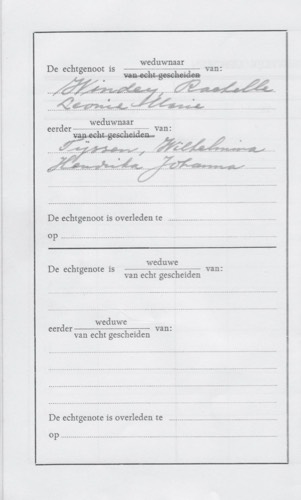 De echtgenoot is weduwnaar van:
van echt gescheiden
Winder, Rachelle
Leonie Marie
eerder weduwnaar van:
van echt gescheiden
Tijssen, Wilhelmina
Hendrika Johanna
De echtgenoot is overleden te
op
De echtgenote is weduwe van:
van echt gescheiden
eerder weduwe van:
van echt gescheiden
De echtgenote is overleden te
op